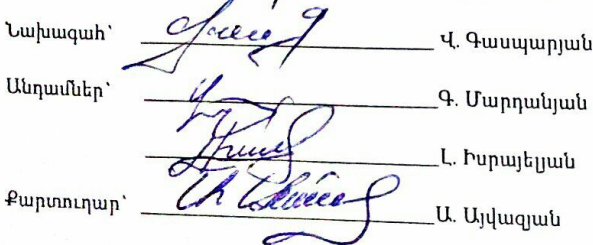 Նախագահ՝ Վ. Գասպարյան
Անդամներ՝ Գ. Մարդանյան
Լ. Իսրայելյան
Քարտուղար՝ Ա. Այվազյան